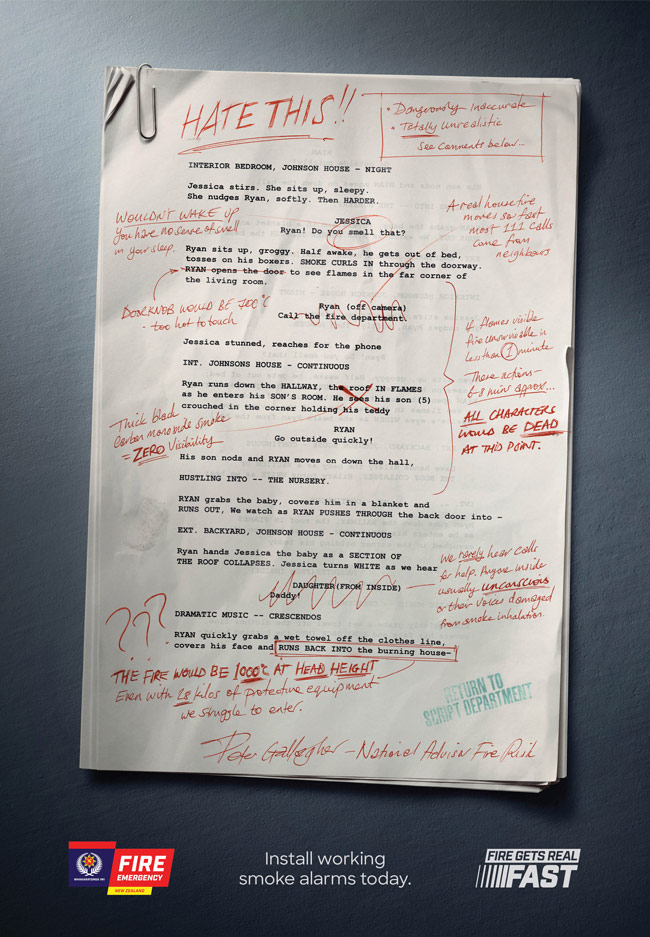 HATE THIS!!
• Dangerously inaccurate
• Totally unrealistic
See comments below...
INTERIOR BEDROOM, JOHNSON HOUSE – NIGHT
Jessica stirs. She sits up, sleepy.
She nudges Ryan, softly. Then HARDER.
WOULDN'T WAKE UP
You have no sense of smell
in your sleep.
JESSICA
Ryan! Do you smell that?
A real house fire
moves so fast
most 111 calls
come from
neighbours
Ryan sits up, groggy. Half awake, he gets out of bed,
tosses on his boxers. SMOKE CURLS IN through the doorway.
RYAN opens the door to see flames in the far corner of
the living room.
DOORKNOB WOULD BE 700°C
- too hot to touch
Ryan (off camera)
Call the fire department.
Jessica stunned, reaches for the phone
INT. JOHNSONS HOUSE – CONTINUOUS
If flames visible
fire unsurvivable in
less than 1 minute
These actions -
6-8 mins approx...
ALL CHARACTERS
WOULD BE DEAD
AT THIS POINT.
Ryan runs down the HALLWAY, the roof IN FLAMES
as he enters his SON'S ROOM. He sees his son (5)
crouched in the corner holding his teddy
Thick black
carbon monoxide smoke
= ZERO visibility
RYAN
Go outside quickly!
His son nods and RYAN moves on down the hall,
HUSTLING INTO -- THE NURSERY.
RYAN grabs the baby, covers him in a blanket and
RUNS OUT, We watch as RYAN PUSHES THROUGH the back door into –
EXT. BACKYARD, JOHNSON HOUSE – CONTINUOUS
Ryan hands Jessica the baby as a SECTION OF
THE ROOF COLLAPSES. Jessica turns WHITE as we hear
We rarely hear calls
for help. Anyone inside
usually unconscious
or their voices damaged
from smoke inhalation.
DAUGHTER(FROM INSIDE)
Daddy!
DRAMATIC MUSIC -- CRESCENDOS
???
RYAN quickly grabs a wet towel off the clothes line,
covers his face and RUNS BACK INTO the burning house–
THE FIRE WOULD BE 1000°C AT HEAD HEIGHT
Even with 28 kilos of protective equipment
we struggle to enter.
RETURN TO
SCRIPT DEPARTMENT
Peter Gallagher – National Advisor Fire Risk
FIRE
EMERGENCY
NEW ZEALAND
Install working
smoke alarms today.
FIRE GETS REAL
FAST